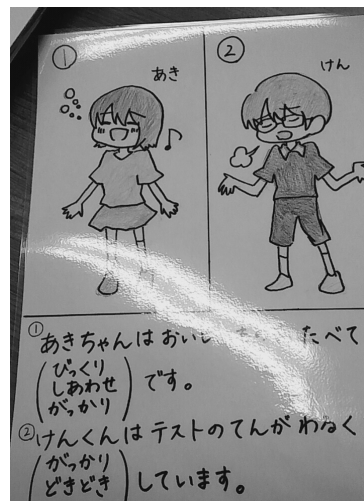 ① ②
あき けん
① あきちゃんは おいし たべて
(びっくり
しあわせ です。
がっかり)
② けんくんは テストの てんが わるく
(がっかり
どきどき) しています。